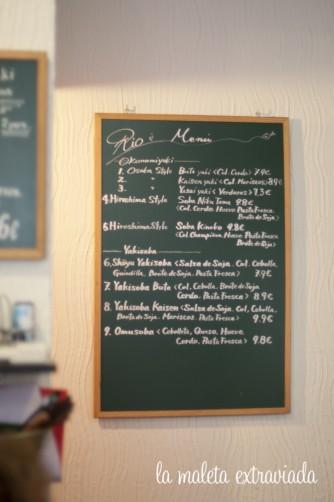 Rio's Menú
Okonomiyaki
1. Osaka Style Buta yaki <Col. Cerdo> 7.9€
2. " Kaisen yaki <Col. Mariscos> 8.9€
3. " Yasai yaki <Verduras> 7.3€
4. Hiroshima Style Soba Niku Tama 9.8€
<Col. Cerdo. Huevo. Pasta Fresca.
Brote de Soja>
5. Hiroshima Style Soba Kinoko 9.8€
<Col. Champiñon. Huevo. Pasta Fresca
Brote de Soja>
Yakisoba
6. Shōyu Yakisoba <Salsa de Soja. Col. Cebolla.
Guindilla. Brote de Soja. Pasta Fresca> 7.9€
7. Yakisoba Buta <Col. Cebolla. Brote de Soja
Cerdo. Pasta Fresca> 8.9€
8. Yakisoba Kaisen <Salsa de Soja. Col. Cebolla.
Brote de Soja. Mariscos. Pasta Fresca> 9.9€
9. Omusoba <Cebollita, Queso, Huevo
Cerdo. Pasta Fresca> 9.8€
la maleta extraviada